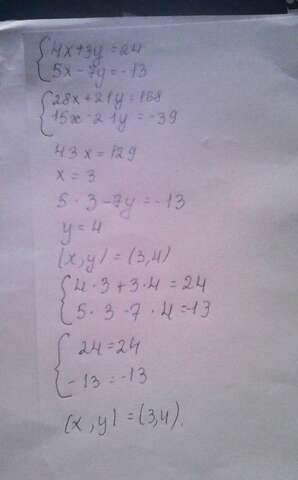 4x+3y=24
5x-7y=-13
28x+21y=168
15x-21y=-39
43x=129
x=3
5·3-7y=-13
y=4
(x,y)=(3,4)
4·3+3·4=24
5·3-7·4=-13
24=24
-13=-13
(x,y)=(3,4).